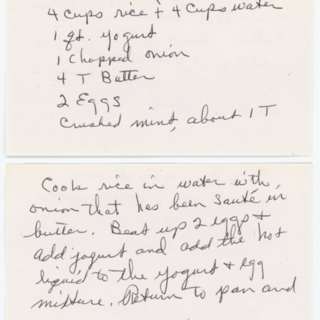 4 cups rice + 4 cups water
1 qt. yogurt
1 chopped onion
4 T Butter
2 Eggs
Crushed mint, about 1 T
Cook rice in water with
onion that has been sauté in
butter. Beat up 2 eggs +
add yogurt and add the hot
liquid to the yogurt + egg
mixture. Return to pan and